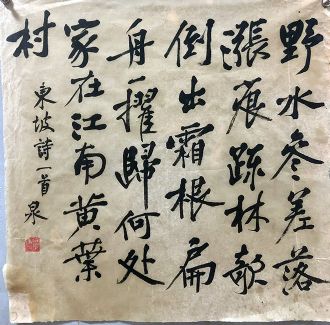 野水參差落
漲痕疎林欹
倒出霜根扁
舟一擢歸何处
家在江南黄葉
村
東坡詩一首 泉